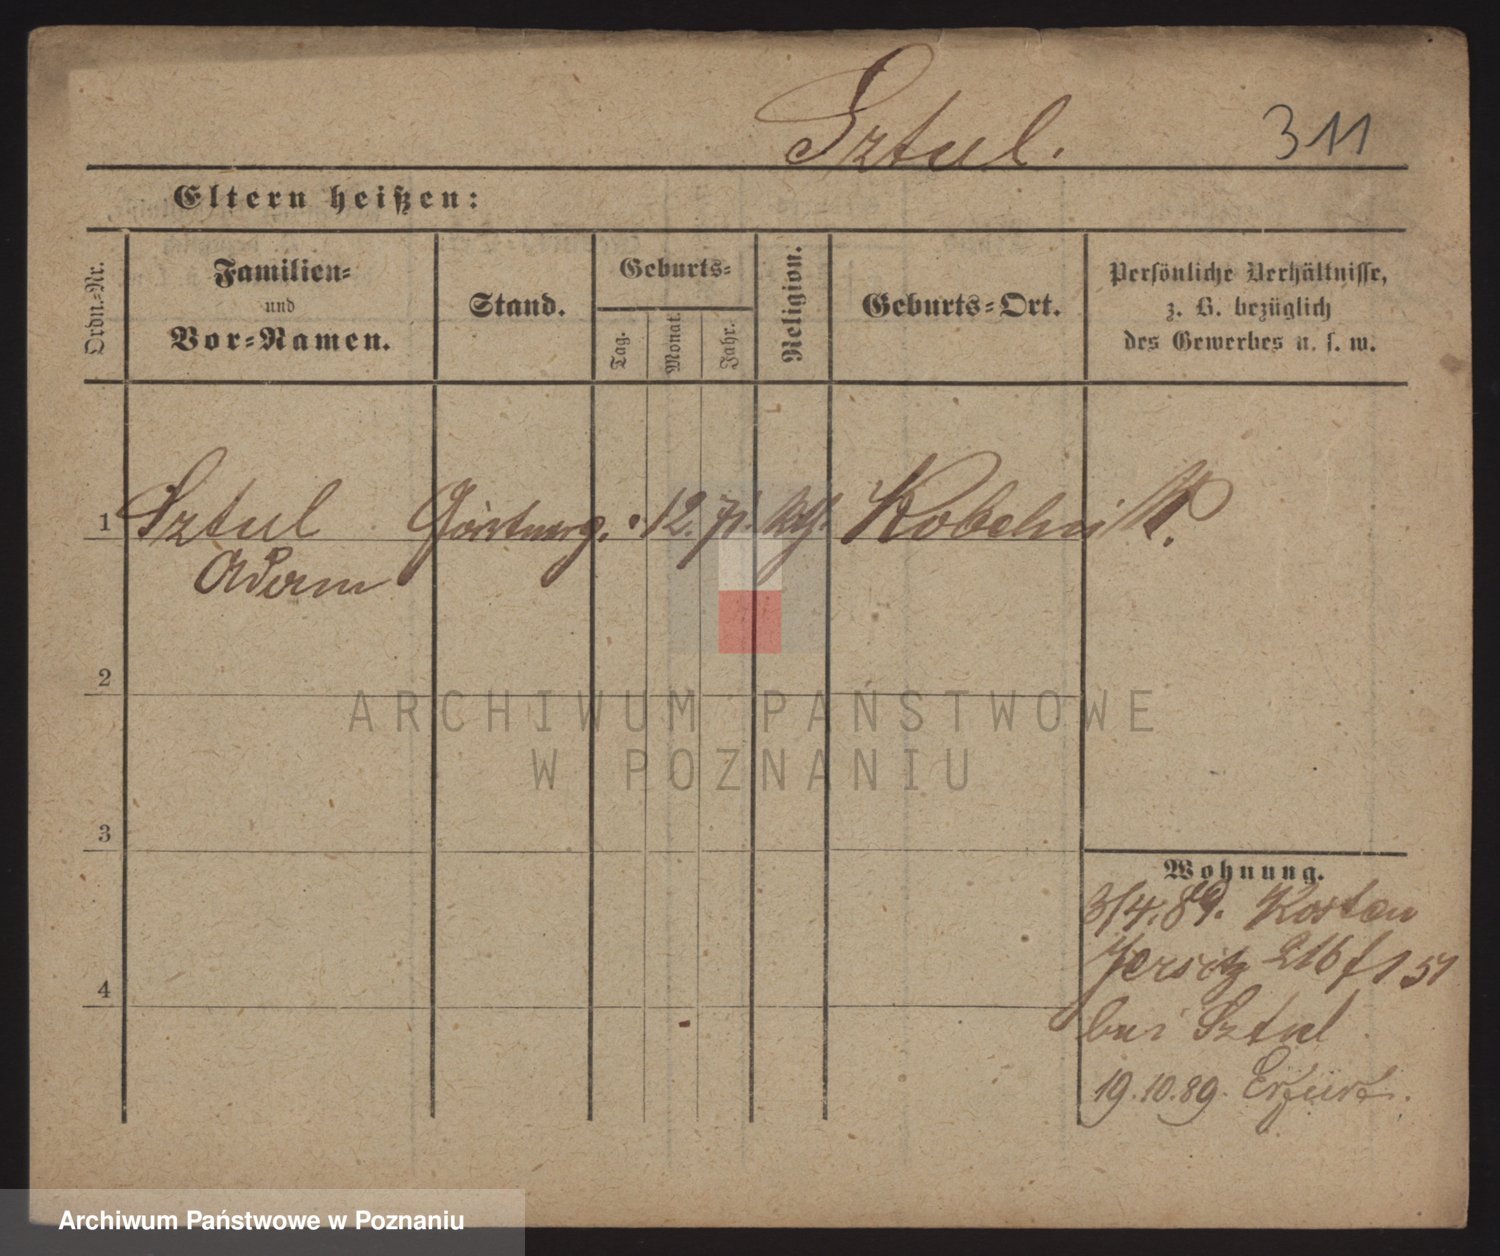 Sztul.
311
Eltern heißen:
Ordn.-Nr.
Familien-
und
Vor-Namen.
Stand.
Geburts-
Tag.
Monat.
Jahr.
Religion.
Geburts-Ort.
Persönliche Verhältnisse,
z. B. bezüglich
des Gewerbes u. s. w.
1 Sztul Gärtnerg. 12. 71. kth. Kobelnik
Adam
2
3
4
Wohnung.
3/4. 89. Kosten
Jersitz 216 f 1 51
bei Sztul
19.10.89. Erfurt.
ARCHIWUM PAŃSTWOWE
W POZNANIU
Archiwum Państwowe w Poznaniu